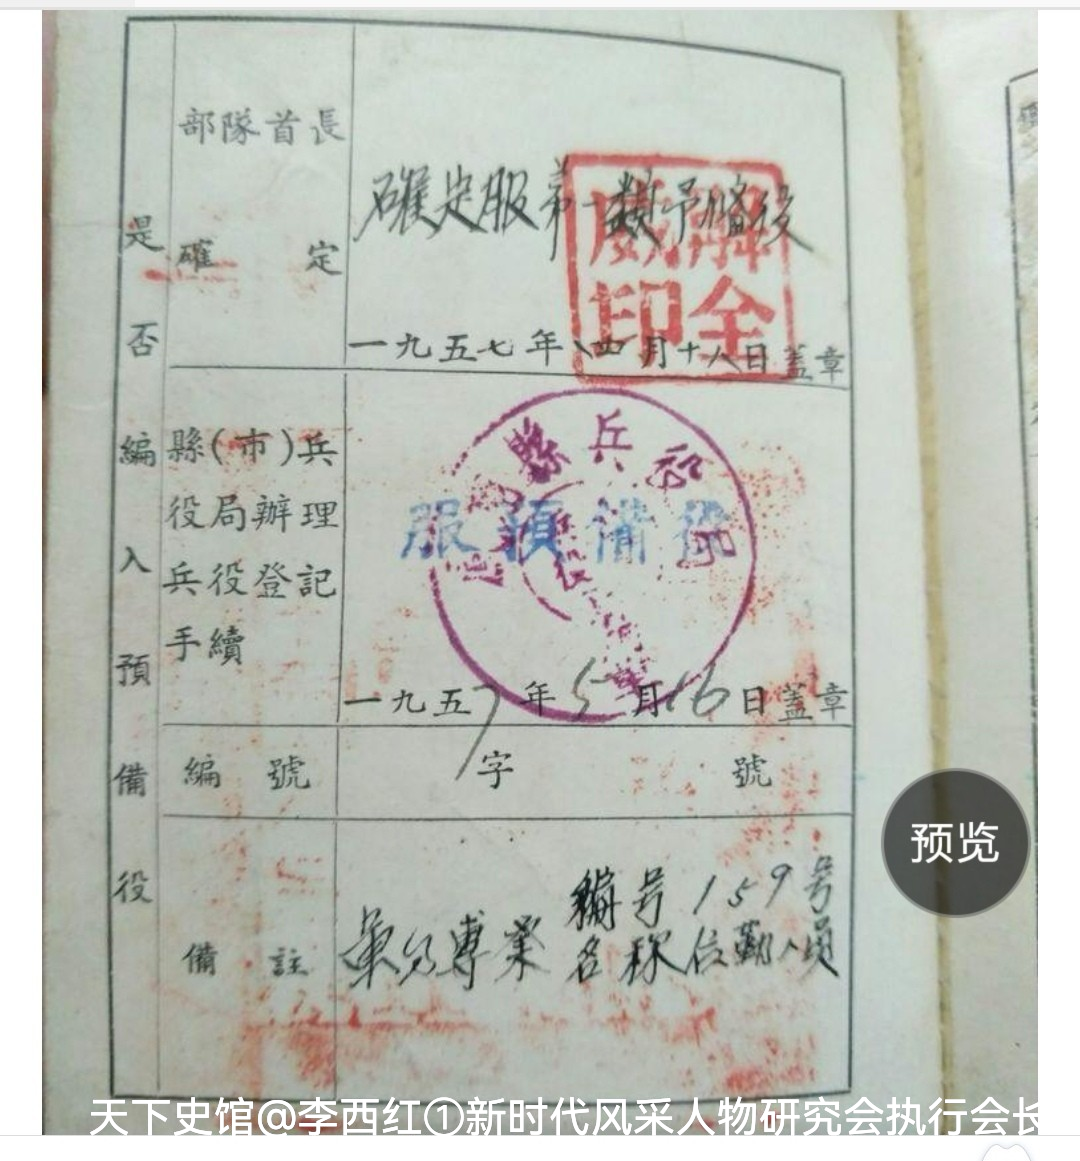 是否編入預備役
部隊首長
確定
確定服第一類予備役
解全
印
一九五七年四月十八日蓋章
縣(市)兵
役局辦理
兵役登記
手續
縣兵役局
服預備役
一九五7年5月16日蓋章
編號
字 號
備註
編号159号
軍分專業
名称 員
预览
天下史馆@李西红①新时代风采人物研究会执行会长